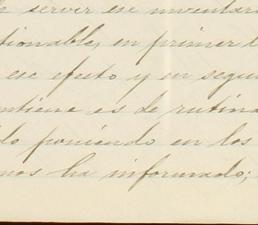 e servir ese inventar
tionable, en primer l
ese efecto y en segu
ntiene es de rutina
do poniendo en los
mos ha informado;